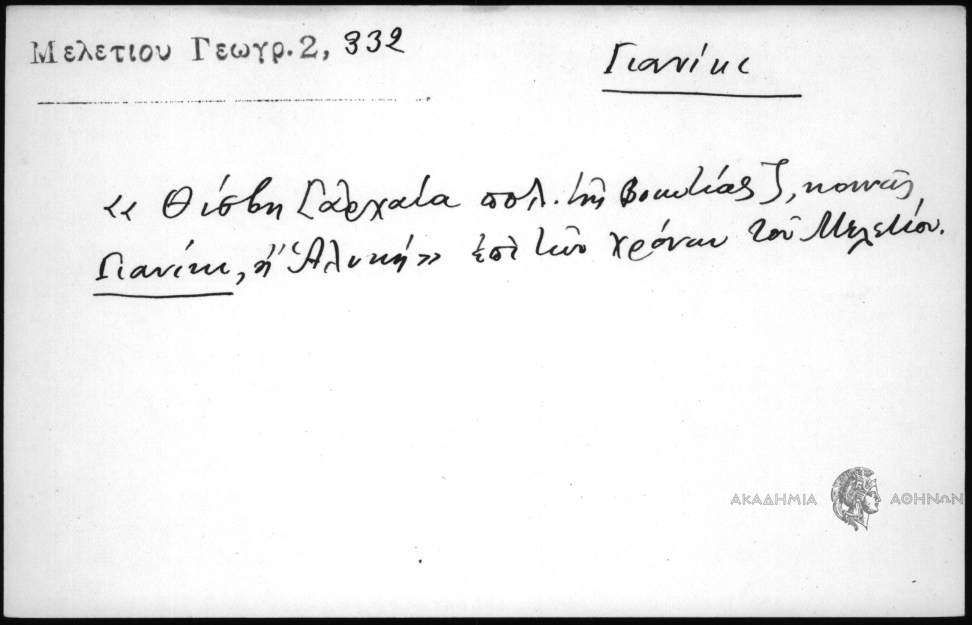 Μελετιου Γεωγρ. 2, 332
Γιανίκι
«Θίσβη [ἀρχαία πολ. τῆς Βοιωτίας], κοινῶς
Γιανίκι, ἢ Ἁλυκή» ἐπὶ τῶν χρόνων τοῦ Μελετίου.
ΑΚΑΔΗΜΙΑ ΑΘΗΝΩΝ